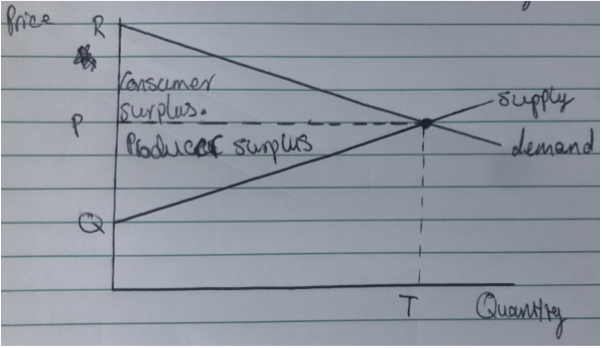 Price
R
Consumer
surplus.
P
Producer surplus
supply
demand
Q
T
Quantity